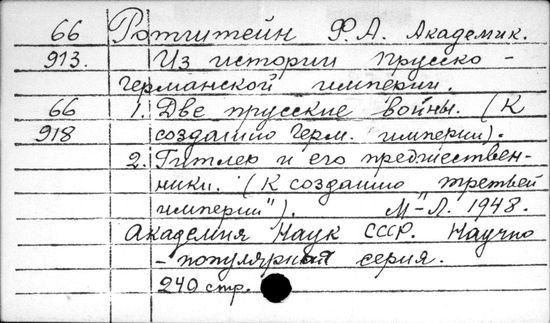 66 Ротштейн Ф.А. Академик.
913. Из истории прусско-
германской империи.
66 1. Две прусские войны. (К
918 созданию Герм. империи).
2. Гитлер и его предшествен-
ники. (К созданию "третьей
империи"). М-Л. 1948.
Академия Наук СССР. Научно
-популярная серия.
240 стр.